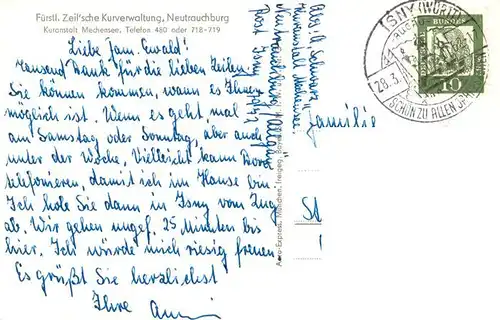 Fürstl. Zeil'sche Kurverwaltung, Neutrauchburg
Kuranstalt Mechensee, Telefon 480 oder 718-719
Liebe Fam. Ewald!
Tausend Dank für die lieben Zeilen.
Sie können kommen, wann es Ihnen
möglich ist. Wenn es geht, mal
am Samstag oder Sonntag, aber auch
unter der Woche, Vielleicht kann
telefonieren, damit ich im Hause bin
Ich hole Sie dann in Isny vom Zug
ab. Wir gehen ungef. 25 Minuten bis
hier. Ich würde mich riesig freuen
Es grüßt Sie herzlichst
Ihre
Abs. A. Schwarz
Kuranstalt Mechensee
Neutrauchburg/Allgäu
Post Isny
Familie
St
ISNY (WÜRTT
28.3.
SCHÖN ZU ALLEN
BUNDES
10